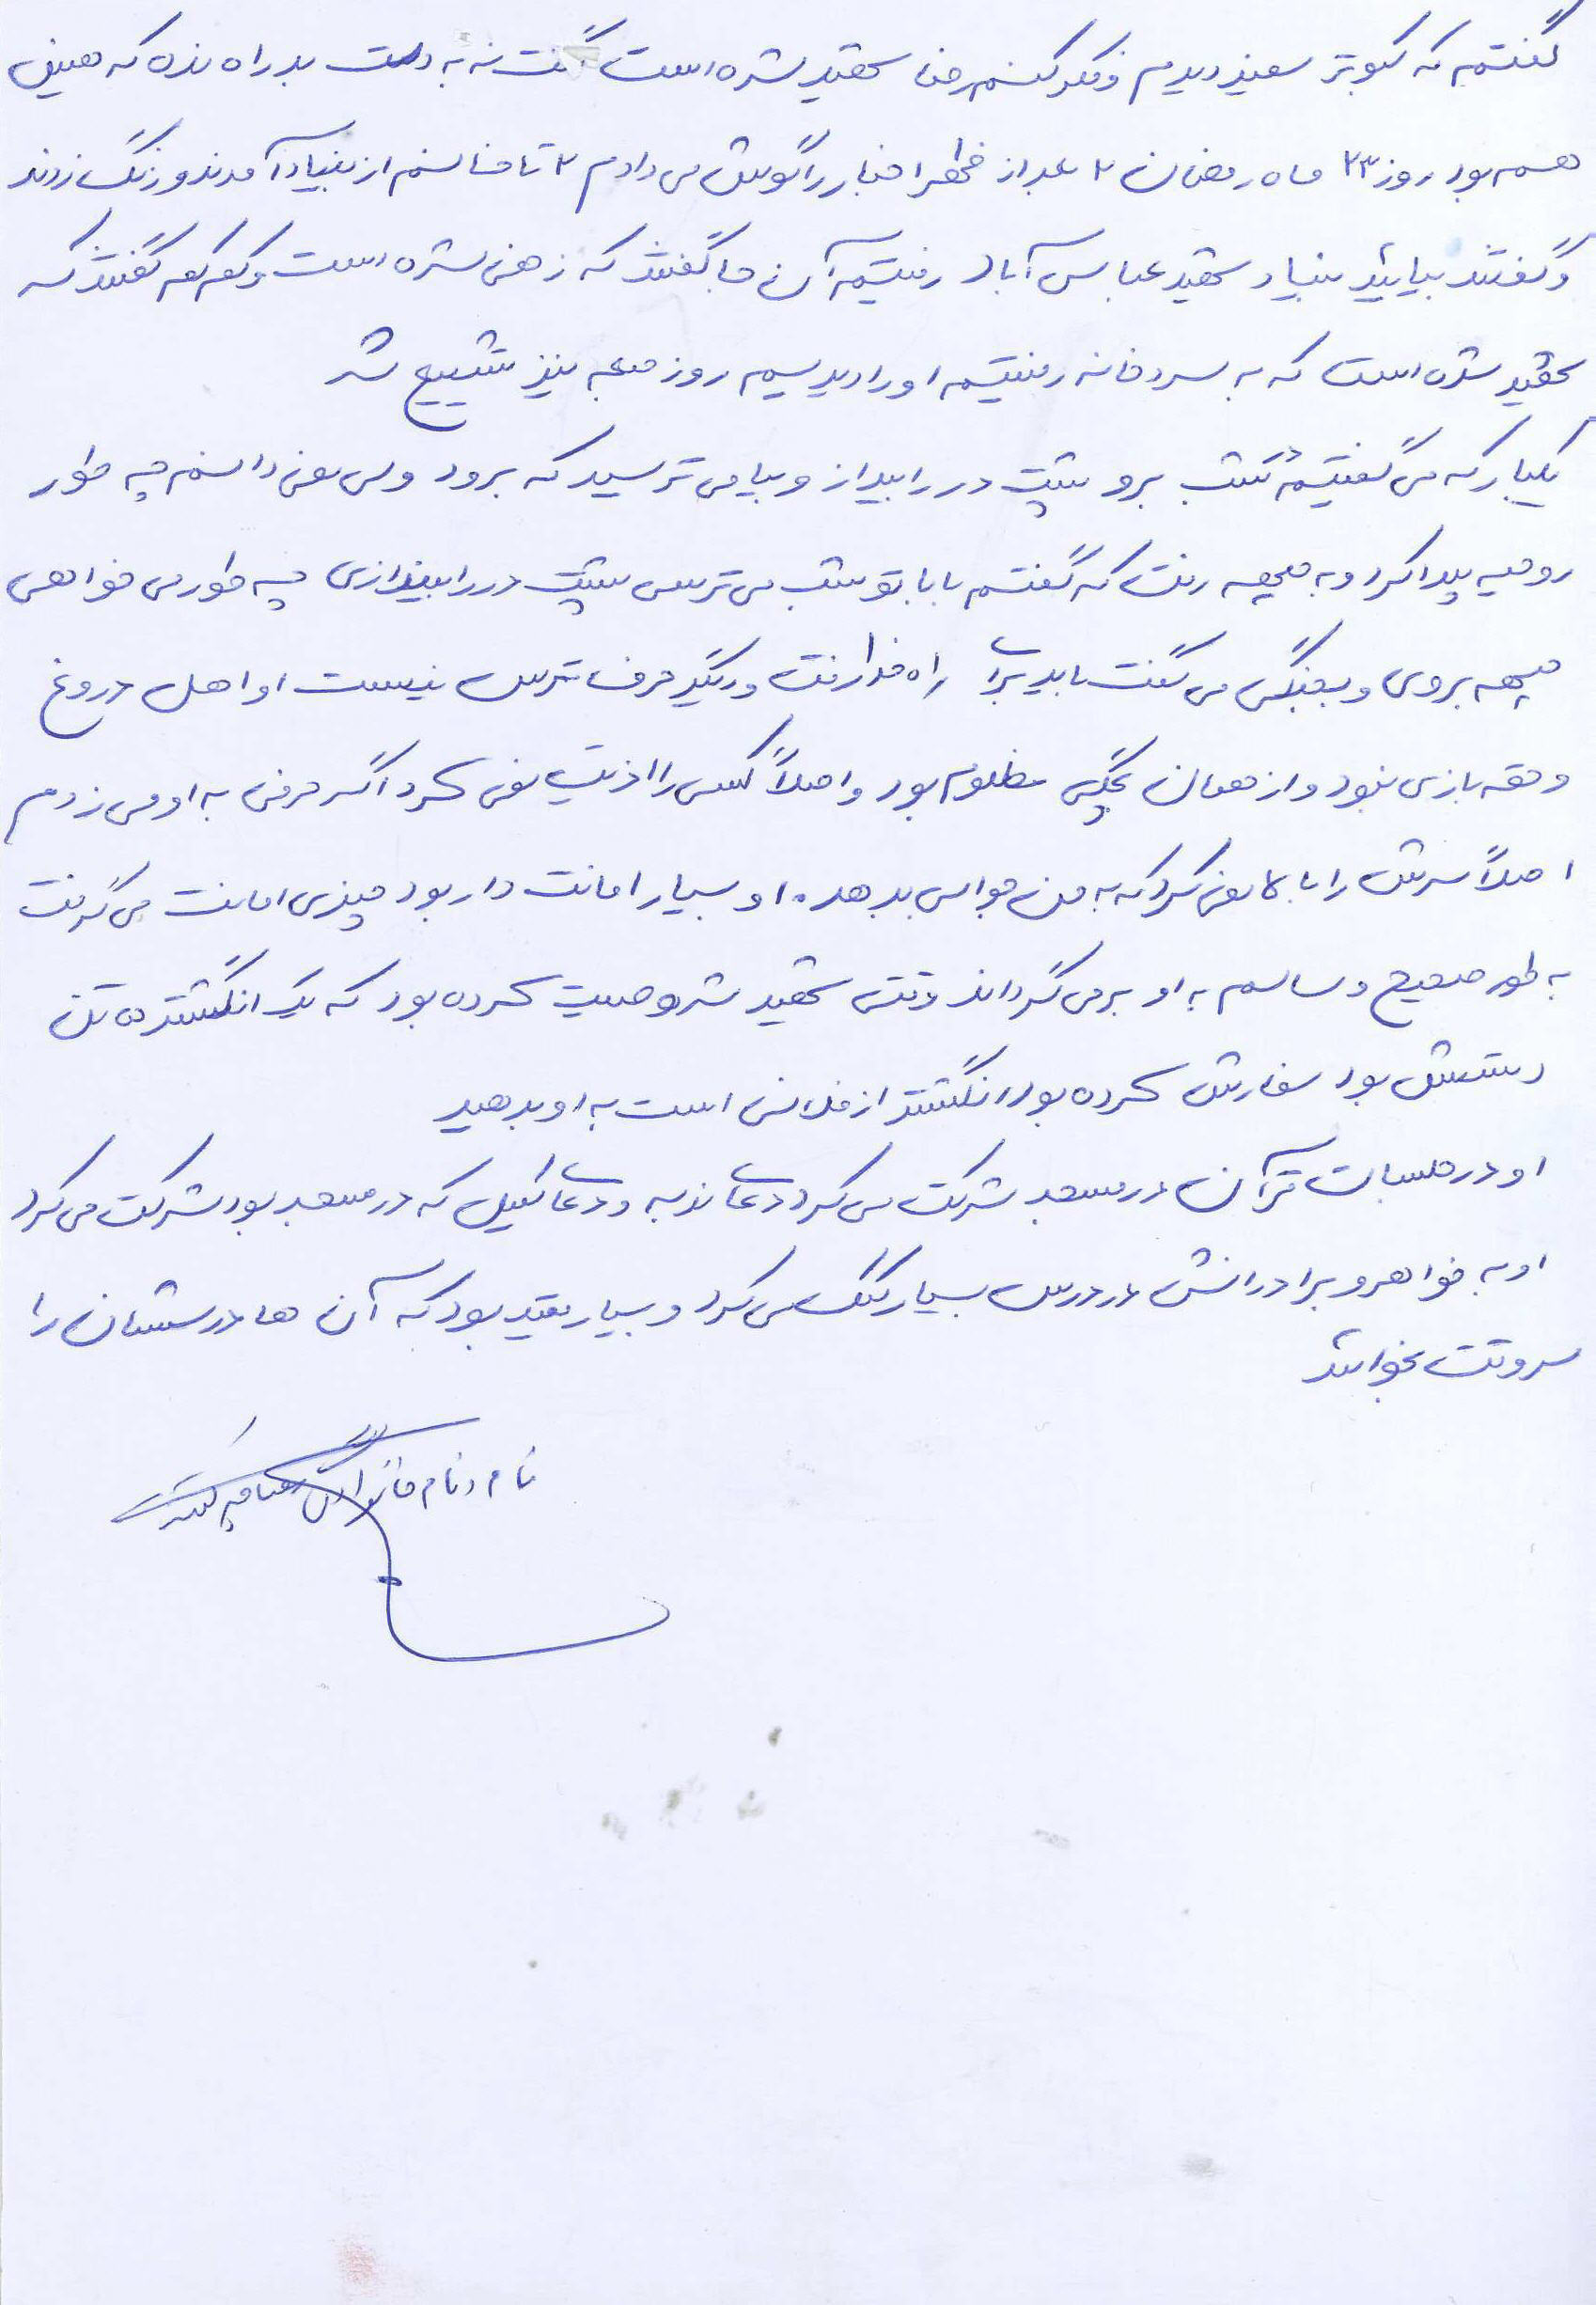 گفتم که کبوتر سفید دیدم فکر کنم رضا شهید شده است گفت نه به دلت بد راه نده که همین
هم بود روز ۲۳ ماه رمضان ۲ بعد از ظهر اخبار را گوش می دادم ۲ تا خانم از بنیاد آمدند و زنگ زدند
و گفتند بیایید بنیاد شهید عباس آباد رفتیم آن جا گفتند که زخمی شده است و کم کم گفتند که
شهید شده است که به سردخانه رفتیم او را دیدیم روز جمعه نیز تشییع شد
یکبار که می گفتیم شب برو پشت در را بیداز و بیا می ترسید که برود ولی نمی دانم چه طور
روحیه پیدا کرد و به جبهه رفت که گفتم بابا تو شب می ترسی پشت در را بیندازی چه طور می خواهی
جبهه بروی و بجنگی می گفت باید برای راه خدا رفت و دیگر حرف ترس نیست او اهل دروغ
و حقه بازی نبود و از همان بچگی مظلوم بود و اصلاً کسی را اذیت نمی کرد اگر حرفی به او می زدم
اصلاً سرش را بالا نمی کرد که به من جوابی بدهد. او بسیار امانت دار بود چیزی امانت می گرفت
به طور صحیح و سالم به او برمی گرداند وقتی شهید شد وصیت کرده بود که یک انگشتر
دستش بود سفارش کرده بود انگشتر از فلانی است به او بدهید
او در جلسات قرآن در مسجد شرکت می کرد دعای ندبه و دعای کمیل که در مسجد بود شرکت می کرد
او به خواهر و برادرانش در درس بسیار کمک می کرد و بسیار مقید بود که آن ها درسشان را
سر وقت بخوانند
نام و نام خانوادگی